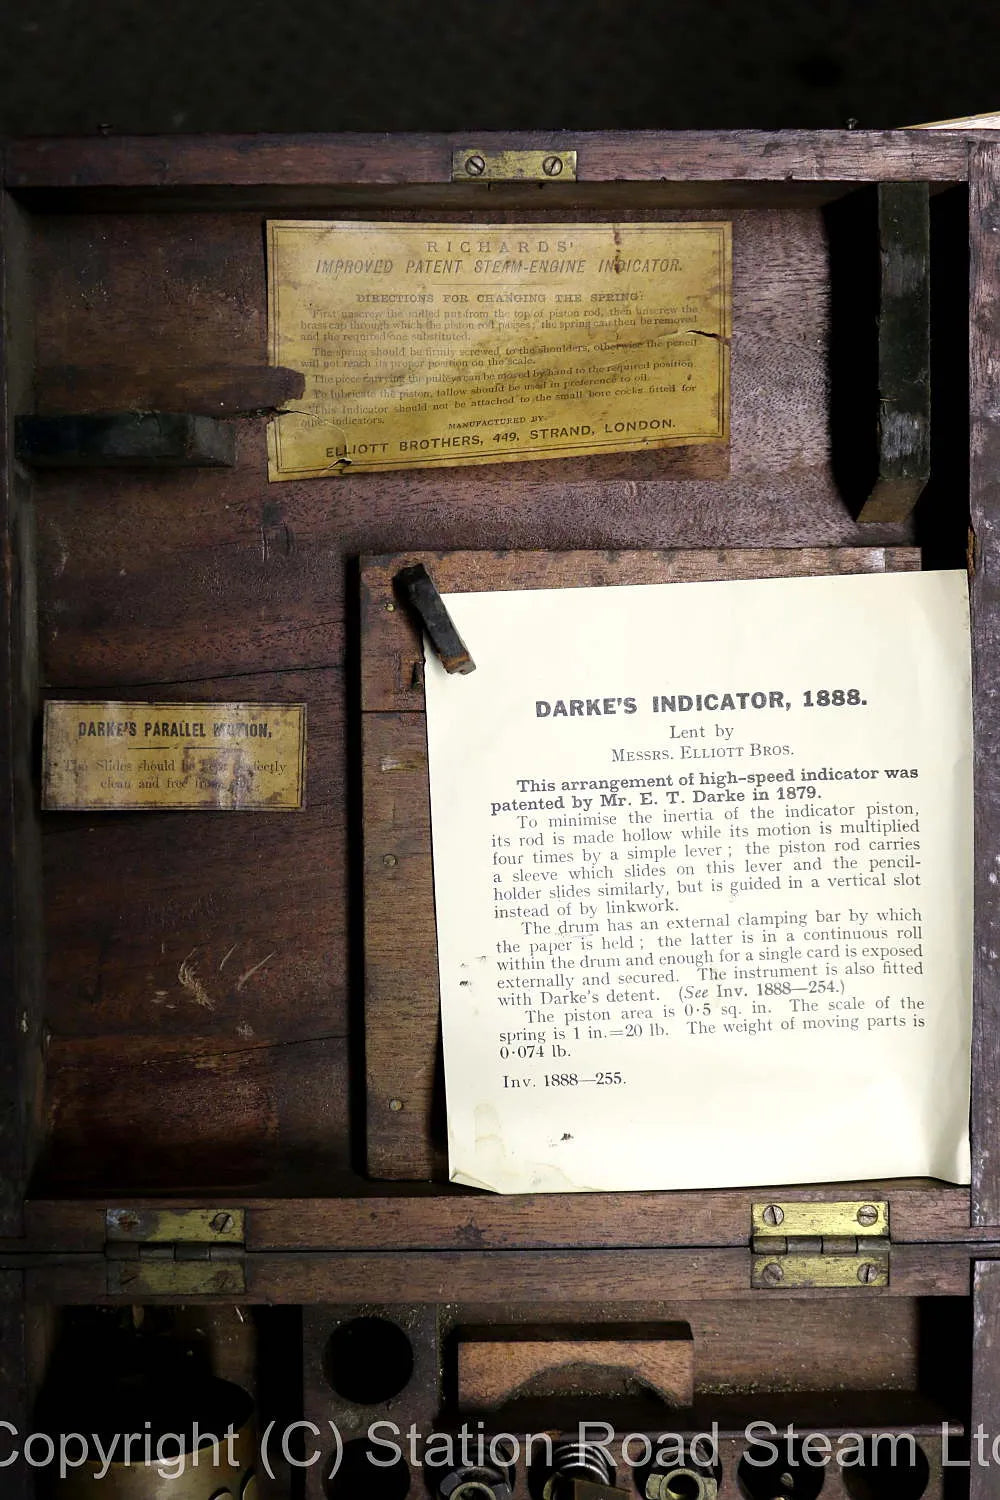 RICHARDS'
IMPROVED PATENT STEAM-ENGINE INDICATOR.
DIRECTIONS FOR CHANGING THE SPRING:
First unscrew the milled nut from the top of piston rod, then unscrew the
brass cap through which the piston rod passes; the spring can then be removed
and the required one substituted.
The spring should be firmly screwed to the shoulders, otherwise the pencil
will not reach its proper position on the scale.
The piece carrying the pulleys can be moved by hand to the required position.
To lubricate the piston, tallow should be used in preference to oil.
This Indicator should not be attached to the small bore cocks fitted for
other indicators.
MANUFACTURED BY
ELLIOTT BROTHERS, 449, STRAND, LONDON.
DARKE'S PARALLEL MOTION,
The Slides should be kept perfectly
clean and free from
DARKE'S INDICATOR, 1888.
Lent by
MESSRS. ELLIOTT BROS.
This arrangement of high-speed indicator was
patented by Mr. E. T. Darke in 1879.
To minimise the inertia of the indicator piston,
its rod is made hollow while its motion is multiplied
four times by a simple lever; the piston rod carries
a sleeve which slides on this lever and the pencil-
holder slides similarly, but is guided in a vertical slot
instead of by linkwork.
The drum has an external clamping bar by which
the paper is held; the latter is in a continuous roll
within the drum and enough for a single card is exposed
externally and secured. The instrument is also fitted
with Darke's detent. (See Inv. 1888—254.)
The piston area is 0·5 sq. in. The scale of the
spring is 1 in.=20 lb. The weight of moving parts is
0·074 lb.
Inv. 1888—255.
Copyright (C) Station Road Steam Ltd